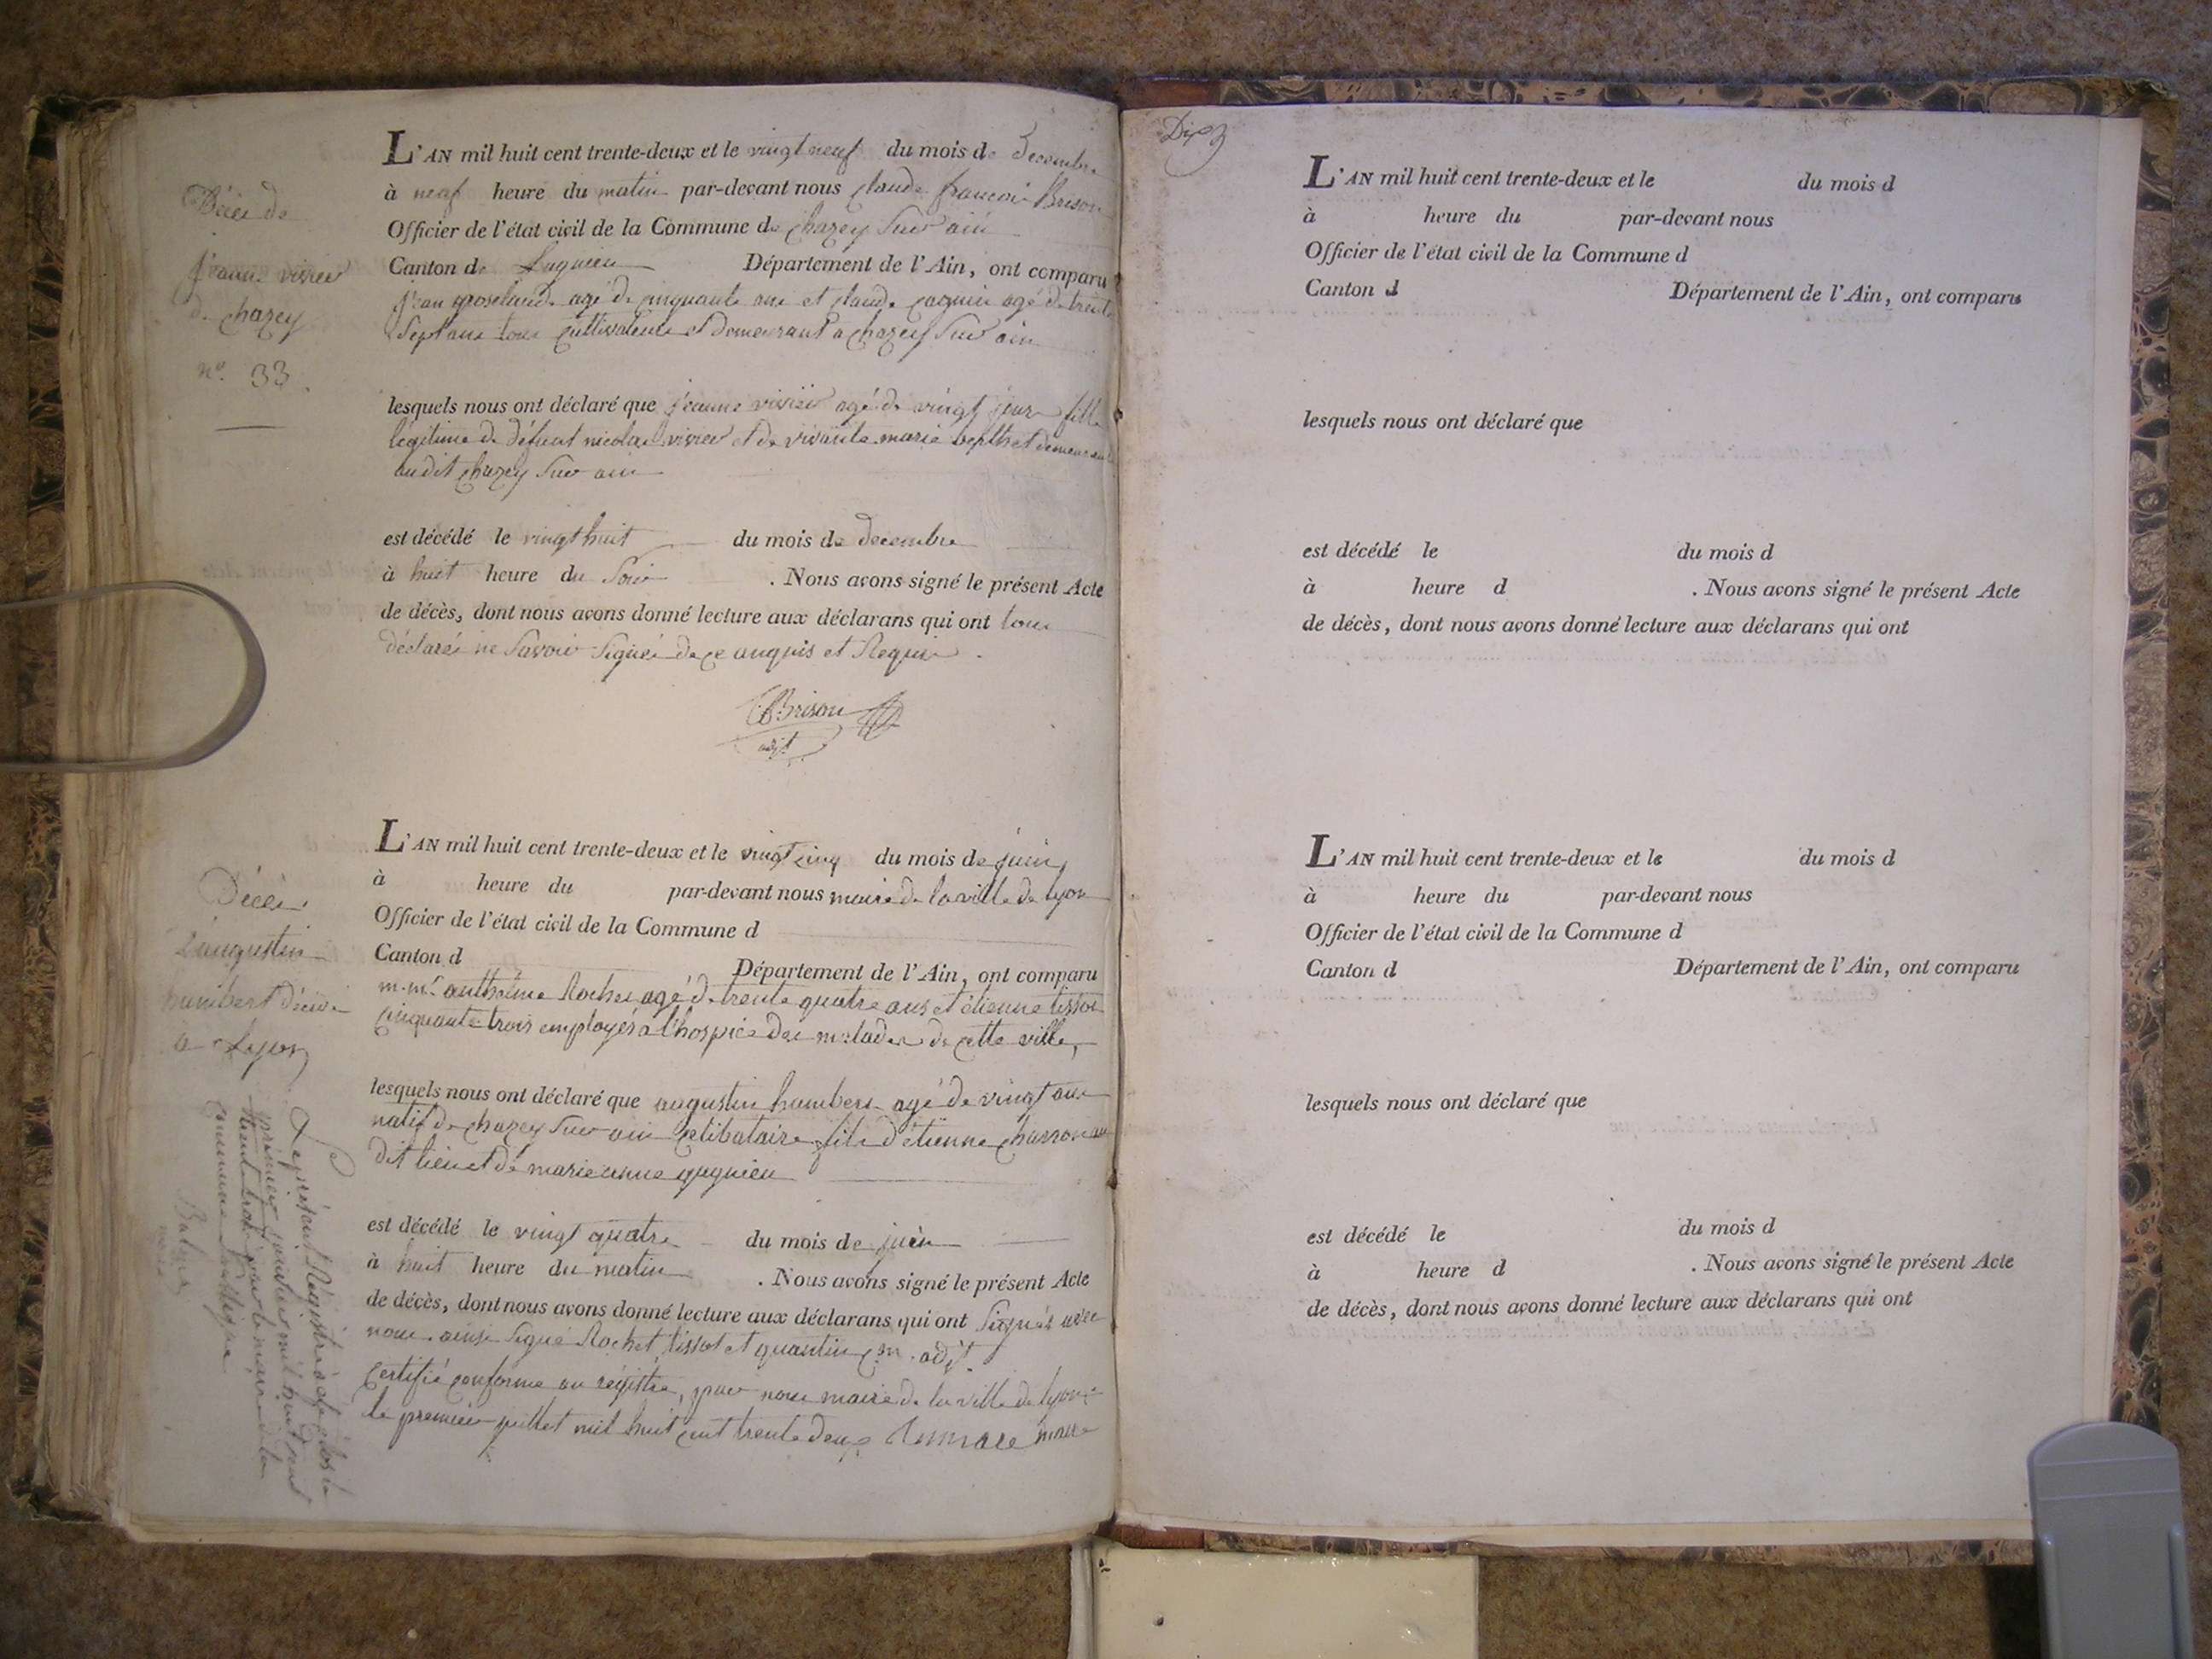 Décès de
jeanne vivier
de chazey
n.º 33.
L'AN mil huit cent trente-deux et le vingt neuf du mois de Decembre
à neuf heure du matin par-devant nous claude francois Brison
Officier de l'état civil de la Commune de chazey Sur ain
Canton de Lagnieu Département de l'Ain, ont comparu
jean agé de cinquante ans et claude agé de trente
Sept ans tous cultivateurs et demeurant a chazey Sur ain
lesquels nous ont déclaré que jeanne vivier agé de vingt jours fille
légitime de défunt nicolas vivier et de vivante marie demeurant
audit chazey Sur ain
est décédé le vingt huit du mois de decembre
à huit heure du Soir . Nous avons signé le présent Acte
de décès, dont nous avons donné lecture aux déclarans qui ont tous
déclarés ne Savoir Signer de ce enquis et Requis.
Brison
adjt
Décès
d'augustin
humbert décédé
a Lyon
L'AN mil huit cent trente-deux et le vingt cinq du mois de juin,
à heure du par-devant nous maire de la ville de lyon
Officier de l'état civil de la Commune d
Canton d Département de l'Ain, ont comparu
m.mrs anthelme Rochet agé de trente quatre ans et étienne tissot
cinquante trois employés a l'hospice des malades de cette ville,
lesquels nous ont déclaré que augustin humbert agé de vingt ans
natif de chazey Sur ain celibataire fils d'étienne charron au
dit lieu et de marieanne
est décédé le vingt quatre du mois de juin
à huit heure du matin . Nous avons signé le présent Acte
de décès, dont nous avons donné lecture aux déclarans qui ont Signés avec
nous. ainsi Signé Rochet tissot et quantin c.m. adjt.
Certifié conforme au régistre, par nous maire de la ville de lyon
le premier juillet mil huit cent trente deux maire
Le présent Régistre a été clos le
premier janvier mil huit cent
trente trois par le maire de la
commune
L'AN mil huit cent trente-deux et le du mois d
à heure du par-devant nous
Officier de l'état civil de la Commune d
Canton d Département de l'Ain, ont comparu
lesquels nous ont déclaré que
est décédé le du mois d
à heure d . Nous avons signé le présent Acte
de décès, dont nous avons donné lecture aux déclarans qui ont
L'AN mil huit cent trente-deux et le du mois d
à heure du par-devant nous
Officier de l'état civil de la Commune d
Canton d Département de l'Ain, ont comparu
lesquels nous ont déclaré que
est décédé le du mois d
à heure d . Nous avons signé le présent Acte
de décès, dont nous avons donné lecture aux déclarans qui ont